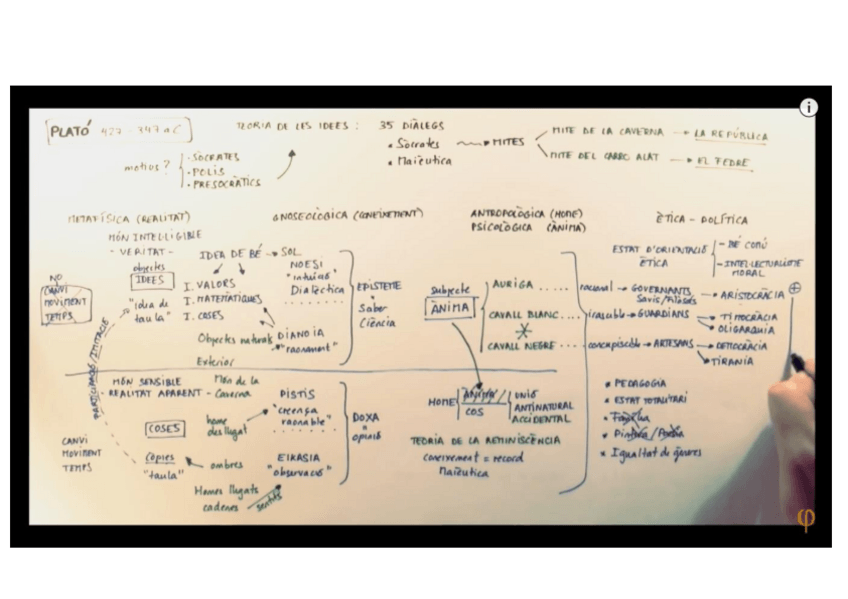 PLATÓ 427 - 347 a.C
TEORIA DE LES IDEES :
35 DIÀLEGS
• Sòcrates
• Maièutica
MITES
MITE DE LA CAVERNA → LA REPÚBLICA
MITE DEL CARRO ALAT → EL FEDRE
motius?
• SÒCRATES
• POLIS
• PRESOCRÀTICS
METAFÍSICA (REALITAT)
MÓN INTEL·LIGIBLE
- VERITAT -
objectes
IDEES
"idea de
taula"
NO
CANVI
MOVIMENT
TEMPS
PARTICIPACIÓ/IMITACIÓ
IDEA DE BÉ → SOL
I. VALORS
I. MATEMÀTIQUES
I. COSES
Objectes naturals
Exterior
GNOSEOLÒGICA (CONEIXEMENT)
NOESI
"intuïció"
Dialèctica
DIANOIA
"raonament"
EPISTEME
"
Saber
Ciència
MÓN SENSIBLE
- REALITAT APARENT -
Món de la
Caverna
COSES
Còpies
"taula"
CANVI
MOVIMENT
TEMPS
home
deslligat
ombres
Homes lligats
cadenes
sentits
PISTIS
"creença
raonable"
EIKASIA
"observació"
DOXA
"
opinió
ANTROPOLÒGICA (HOME)
PSICOLÒGICA (ÀNIMA)
Subjecte
ÀNIMA
AURIGA ..... racional → GOVERNANTS
Savis/Filòsofs
→ ARISTOCRÀCIA
CAVALL BLANC .... irascible → GUARDIANS
→ TIMOCRÀCIA
→ OLIGARQUIA
CAVALL NEGRE .... concupiscible → ARTESANS → DEMOCRÀCIA
→ TIRANIA
HOME
ÀNIMA
COS
UNIÓ
ANTINATURAL
ACCIDENTAL
TEORIA DE LA REMINISCÈNCIA
coneixement = record
Maièutica
ÈTICA - POLÍTICA
ESTAT D'ORIENTACIÓ
ÈTICA
- BÉ COMÚ
- INTEL·LECTUALISME
MORAL
• PEDAGOGIA
• ESTAT TOTALITARI
• Família
• Pintura / Poesia
• Igualtat de gèneres
φ